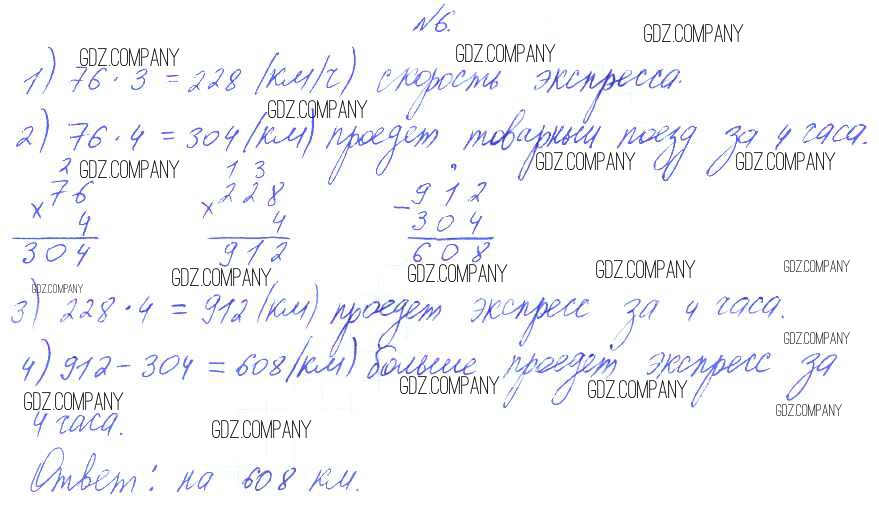 №6.
GDZ.COMPANY GDZ.COMPANY GDZ.COMPANY
1) 76 · 3 = 228 (км/ч) скорость экспресса.
GDZ.COMPANY
2) 76 · 4 = 304 (км) проедет товарный поезд за 4 часа.
GDZ.COMPANY GDZ.COMPANY GDZ.COMPANY
2 1 3
76 228 912
× 4 × 4 − 304
304 912 608
GDZ.COMPANY GDZ.COMPANY GDZ.COMPANY GDZ.COMPANY GDZ.COMPANY
3) 228 · 4 = 912 (км) проедет экспресс за 4 часа.
GDZ.COMPANY
4) 912 − 304 = 608 (км) больше проедет экспресс за
GDZ.COMPANY GDZ.COMPANY GDZ.COMPANY GDZ.COMPANY
4 часа.
GDZ.COMPANY
Ответ: на 608 км.